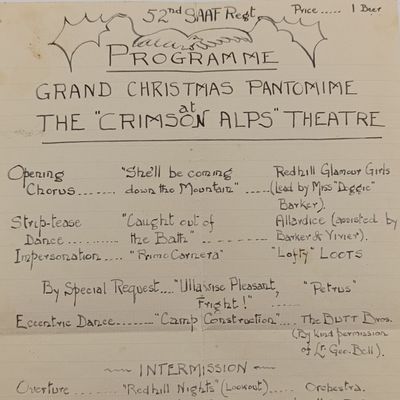 52nd SAAF Regt. Price..... 1 Beer
PROGRAMME
GRAND CHRISTMAS PANTOMIME
at
THE "CRIMSON ALPS" THEATRE
Opening Chorus....... "She'll be coming down the Mountain" ..... Redhill Glamour Girls (Lead by Miss "Doggie" Barker).
Strip-tease Dance........... "Caught out of the Bath" ........... Allardice (assisted by Barker & Vivier).
Impersonation.... "Primo Carnera" "Lofty" LOOTS
By Special Request.... "Ullawise Pleasant, Fright!" ...... "Petrus"
Eccentric Dance......... "Camp Construction".... The BUTT Bros. (By kind permission of Lt. Geo. Bell).
INTERMISSION
Overture ....... "Redhill Nights" (Lookout)..... Orchestra.